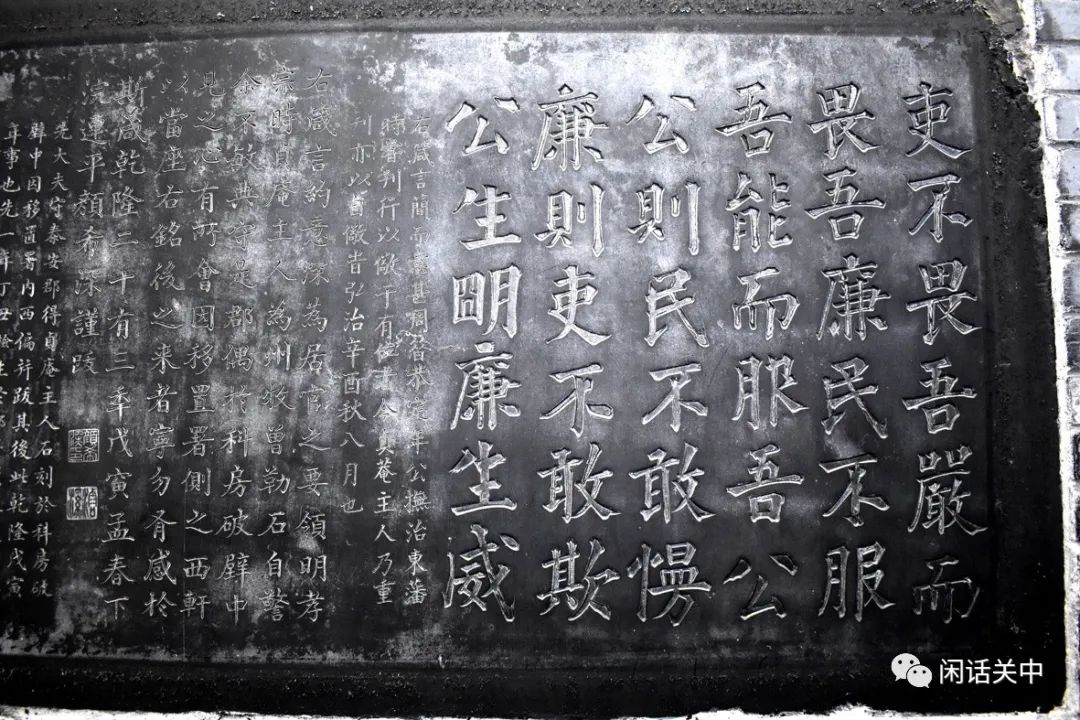 吏不畏吾嚴而
畏吾廉民不服
吾能而服吾公
公則民不敢慢
廉則吏不敢欺
公生明廉生威
右箴言簡而甚昔恭定年公撫治東藩
時刊行以儆于有位者今真菴主人乃重
刊亦以自儆旹弘治辛酉秋八月也
右箴言約意深為居官之要領明孝
宗時貞庵主人為州牧曾勒石自警
余不敏典守是郡偶於科房破壁中
見之心有所會因移置署側之西軒
以當座右銘後之來者寧勿有感於
斯箴乾隆二十有三年戊寅孟春下
浣連平顏希深謹跋
先大夫守泰安郡得貞庵主人石刻於科房破
壁中因移置署內西偏并跋其後此乾隆戊寅
年事也先一年丁丑檢生於郡
闲话关中